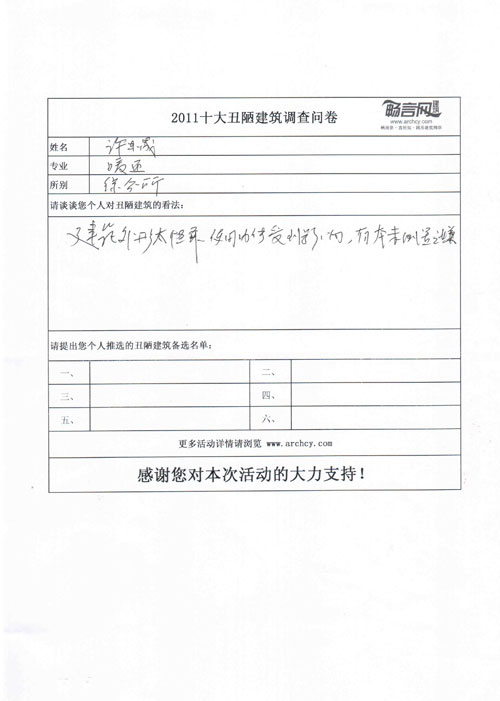 2011十大丑陋建筑调查问卷
畅言网
www.archcy.com
姓名 许
专业 暖通
所别 综合所
请谈谈您个人对丑陋建筑的看法:
建筑外形太怪异、使用功能受到影响,有本末倒置之嫌
请提出您个人推选的丑陋建筑备选名单:
一、 二、
三、 四、
五、 六、
更多活动详情请浏览 www.archcy.com
感谢您对本次活动的大力支持!